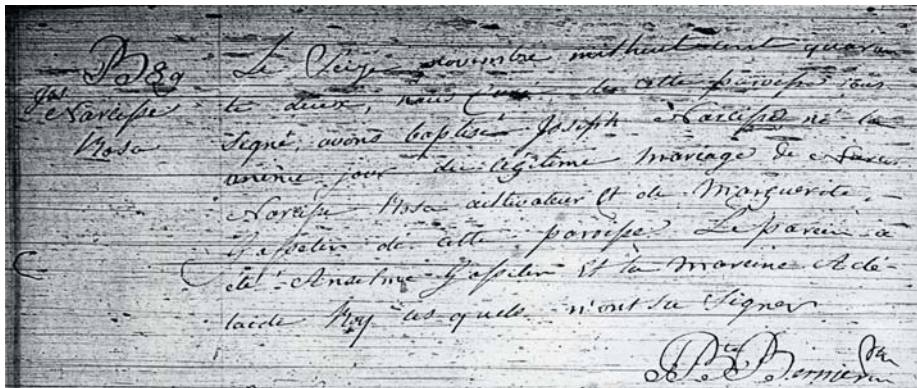 B89
Jos
Narcisse
Rosa
Le Seize novembre mil huit cent quaran
te deux, nous Curé de cette paroisse sous
signé, avons baptisé Joseph Narcisse né la
même jour du légitime mariage de
Narcisse Rosa cultivateur et de Marguerite
de cette paroisse. Le parein a
été Anselme et la mareine Adé-
laide Roy les quels n'ont su signer
Bernier Ptre